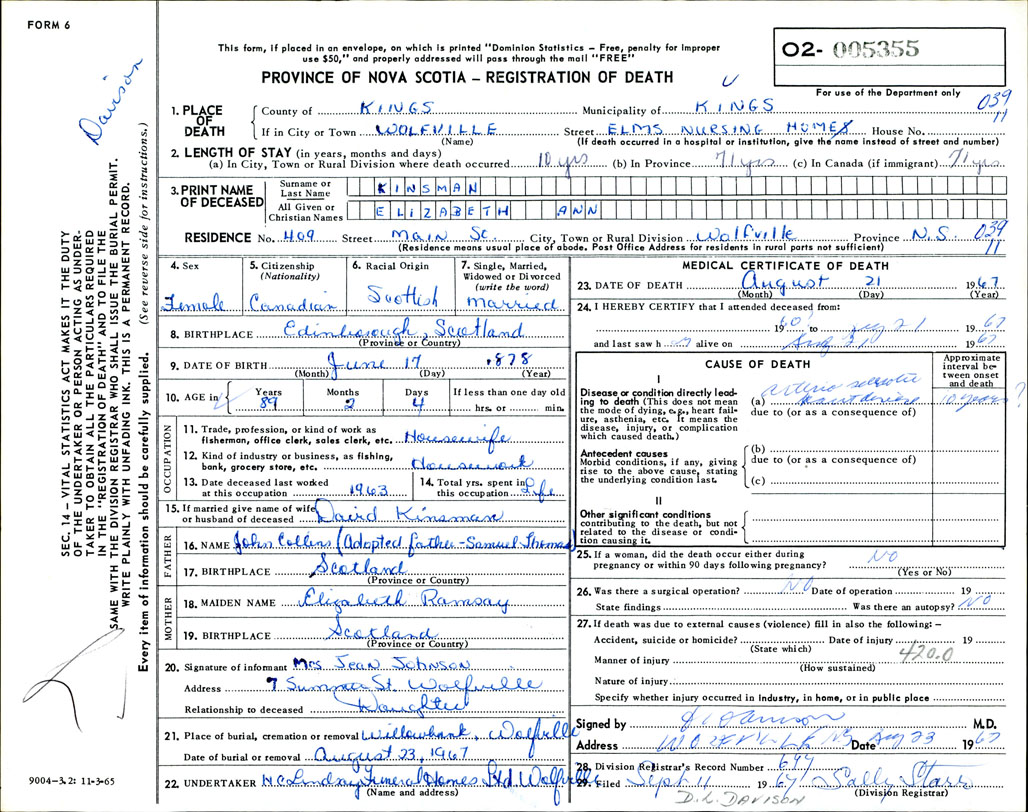 FORM 6
This form, if placed in an envelope, on which is printed "Dominion Statistics – Free, penalty for improper
use $50," and properly addressed will pass through the mail "FREE"
PROVINCE OF NOVA SCOTIA – REGISTRATION OF DEATH
02- 005355
For use of the Department only
039
11
1. PLACE OF DEATH
County of KINGS Municipality of KINGS
If in City or Town WOLFVILLE Street ELMS NURSING HOMES House No.
(Name) (If death occurred in a hospital or institution, give the name instead of street and number)
2. LENGTH OF STAY (in years, months and days)
(a) In City, Town or Rural Division where death occurred 10 yrs (b) In Province 71 yrs (c) In Canada (if immigrant) 71 yrs
3. PRINT NAME OF DECEASED
Surname or Last Name KINSMAN
All Given or Christian Names ELIZABETH ANN
RESIDENCE No. 409 Street Main St. City, Town or Rural Division Wolfville Province N.S. 039
11
(Residence means usual place of abode. Post Office Address for residents in rural parts not sufficient)
4. Sex
Female
5. Citizenship
(Nationality)
Canadian
6. Racial Origin
Scottish
7. Single, Married,
Widowed or Divorced
(write the word)
Married
8. BIRTHPLACE Edinborough, Scotland
(Province or Country)
9. DATE OF BIRTH June 17 1878
(Month) (Day) (Year)
10. AGE in
Years Months Days If less than one day old
89 2 4 hrs. or min.
OCCUPATION
11. Trade, profession, or kind of work as
fisherman, office clerk, sales clerk, etc. Housewife
12. Kind of industry or business, as fishing,
bank, grocery store, etc. Housework
13. Date deceased last worked
at this occupation 1963
14. Total yrs. spent in
this occupation Life
15. If married give name of wife
or husband of deceased David Kinsman
FATHER
16. NAME John Collins (Adopted father-Samuel Thomas)
17. BIRTHPLACE Scotland
(Province or Country)
MOTHER
18. MAIDEN NAME Elizabeth Ramsay
19. BIRTHPLACE Scotland
(Province or Country)
20. Signature of informant Mrs Jean Johnson
Address 7 Summer St. Wolfville
Relationship to deceased Daughter
21. Place of burial, cremation or removal Willowbank, Wolfville
Date of burial or removal August 23, 1967
22. UNDERTAKER H.C. Lindsay Funeral Homes Ltd. Wolfville
(Name and address)
MEDICAL CERTIFICATE OF DEATH
23. DATE OF DEATH August 21 1967
(Month) (Day) (Year)
24. I HEREBY CERTIFY that I attended deceased from:
1960 to Aug 21 1967
and last saw h er alive on Aug 21 1967
CAUSE OF DEATH
Approximate
interval be-
tween onset
and death
I
Disease or condition directly lead-
ing to death (This does not mean
the mode of dying, e.g., heart fail-
ure, asthenia, etc. It means the
disease, injury, or complication
which caused death.)
(a) arterio sclerotic
heart disease 10 years ?
due to (or as a consequence of)
Antecedent causes
Morbid conditions, if any, giving
rise to the above cause, stating
the underlying condition last.
(b)
due to (or as a consequence of)
(c)
II
Other significant conditions
contributing to the death, but not
related to the disease or condi-
tion causing it.
25. If a woman, did the death occur either during
pregnancy or within 90 days following pregnancy? NO
(Yes or No)
26. Was there a surgical operation? NO Date of operation 19
State findings Was there an autopsy? NO
27. If death was due to external causes (violence) fill in also the following: –
Accident, suicide or homicide? Date of injury 19
(State which) 420.0
Manner of injury
(How sustained)
Nature of injury
Specify whether injury occurred in industry, in home, or in public place
Signed by M.D.
Address WOLFVILLE NS Date Aug 23 1967
28. Division Registrar's Record Number 647
29. Filed Sept. 11 1967 Sally Starr
(Division Registrar)
D.L. DAVISON
Davison
SEC. 14 – VITAL STATISTICS ACT MAKES IT THE DUTY
OF THE UNDERTAKER OR PERSON ACTING AS UNDER-
TAKER TO OBTAIN ALL THE PARTICULARS REQUIRED
IN THE "REGISTRATION OF DEATH" AND TO FILE THE
SAME WITH THE DIVISION REGISTRAR WHO SHALL ISSUE THE BURIAL PERMIT.
WRITE PLAINLY WITH UNFADING INK. THIS IS A PERMANENT RECORD.
Every item of information should be carefully supplied. (See reverse side for instructions.)
9004-3.2: 11-3-65